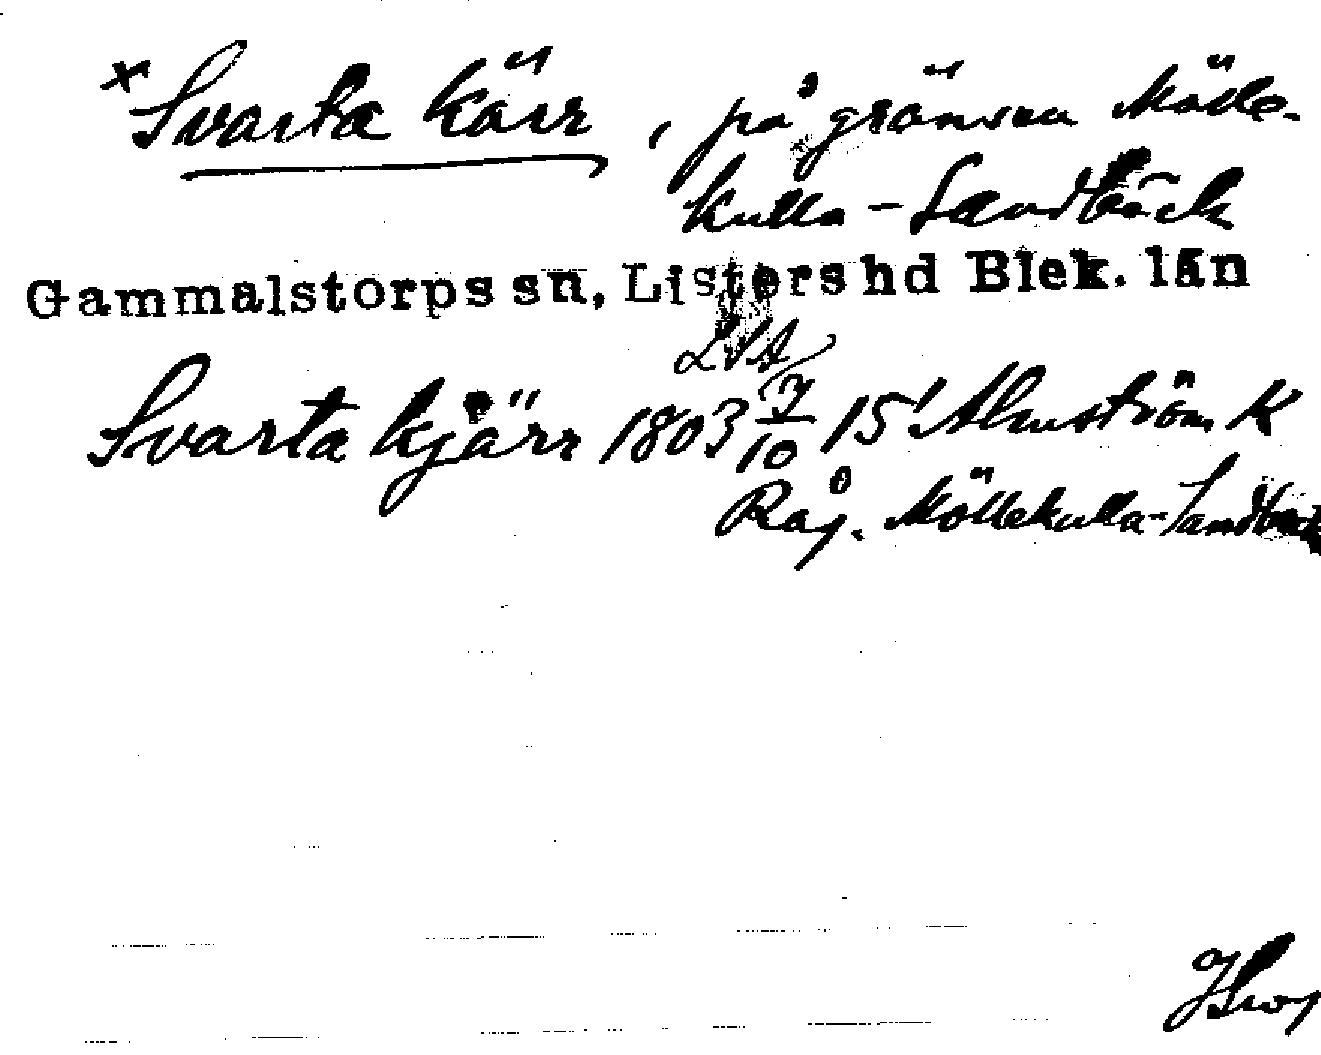 × Svarta kärr, på gränsen Mölle-
kulla - Sandbäck
Gammalstorps sn, Listers hd Blek. län
LVA
Svarta kjärr 1803 7/10 15! Almström K
Råg. Möllekulla-Sandbäck